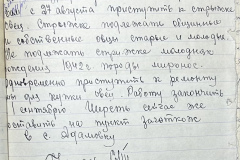 с 27 августа приступить к стрижке
овец. Стрижке подлежать овцины
и собственные овцы старые и молодые
Не подлежать стрижке молодняк
рождения 1942 г породы
одновременно приступить к ремонту
для купки овец. Работу закончить
1 сентября. Шерсть сейчас же
доставить на пункт заготкож
в с. Адамовку